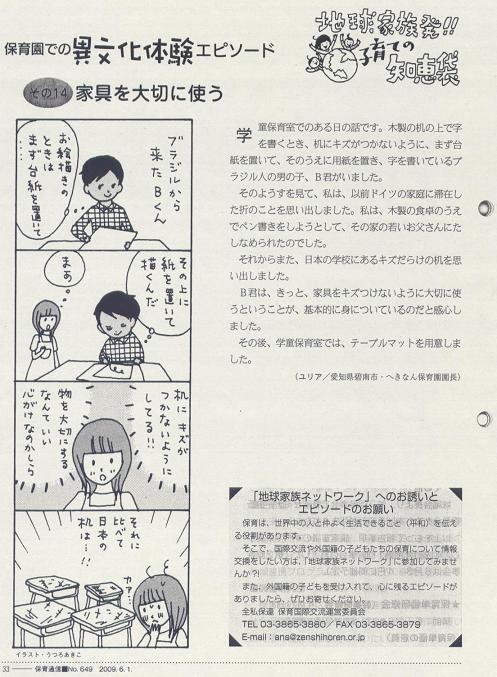 地球家族発!!
子育ての
知恵袋
保育園での異文化体験エピソード
その14 家具を大切に使う
ブラジルから
来たBくん
お絵描きの
ときは
まず台紙を置いて
……
その上に
紙を置いて
描くんだ
まあ
机にキズが
つかないように
してる!!
物を大切にする
なんていい
心がけなのかしら
それに
比べて
日本の
机は…!!
カァー
イラスト・うつろあきこ
学童保育室でのある日の話です。木製の机の上で字
を書くとき、机にキズがつかないように、まず台
紙を置いて、そのうえに用紙を置き、字を書いているブ
ラジル人の男の子、B君がいました。
そのようすを見て、私は、以前ドイツの家庭に滞在し
た折のことを思い出しました。私は、木製の食卓のうえ
でペン書きをしようとして、その家の若いお父さんにた
しなめられたのでした。
それからまた、日本の学校にあるキズだらけの机を思
い出しました。
B君は、きっと、家具をキズつけないように大切に使
うということが、基本的に身についているのだと感心し
ました。
その後、学童保育室では、テーブルマットを用意しま
した。
(ユリア/愛知県碧南市・へきなん保育園園長)
「地球家族ネットワーク」へのお誘いと
エピソードのお願い
保育は、世界中の人と仲よく生活できること(平和)を伝え
る役割があります。
そこで、国際交流や外国籍の子どもたちの保育について情報
交換をしたい方は、「地球家族ネットワーク」に参加してみませ
んか?!
また、外国籍の子どもを受け入れて、心に残るエピソードが
ありましたら、ぜひお寄せください。
全私保連 保育国際交流運営委員会
TEL 03-3865-3880/FAX 03-3865-3879
E-mail:ana@zenshihoren.or.jp
33 ── 保育通信■No.649 2009.6.1.